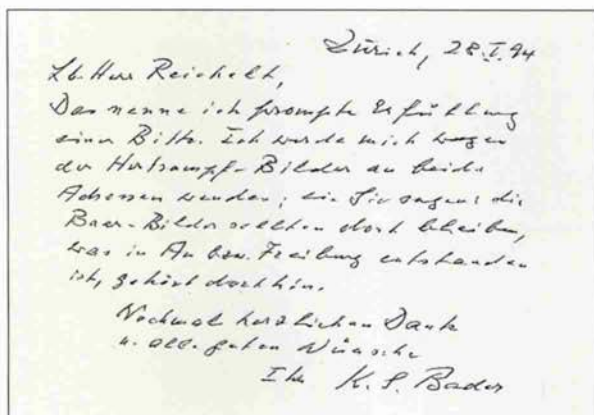 Zürich, 28.I.94
Lb. Herr Reichelt,
Das nenne ich prompte Erfüllung
einer Bitte. Ich werde mich wegen
der Bilder an beide
Adressen wenden; wie Sie sagen: die
Baer-Bilder sollten dort bleiben,
was in Au bzw. Freiburg entstanden
ist, gehört dorthin.
Nochmal herzlichen Dank
u. alle guten Wünsche
Ihr K. S. Bader